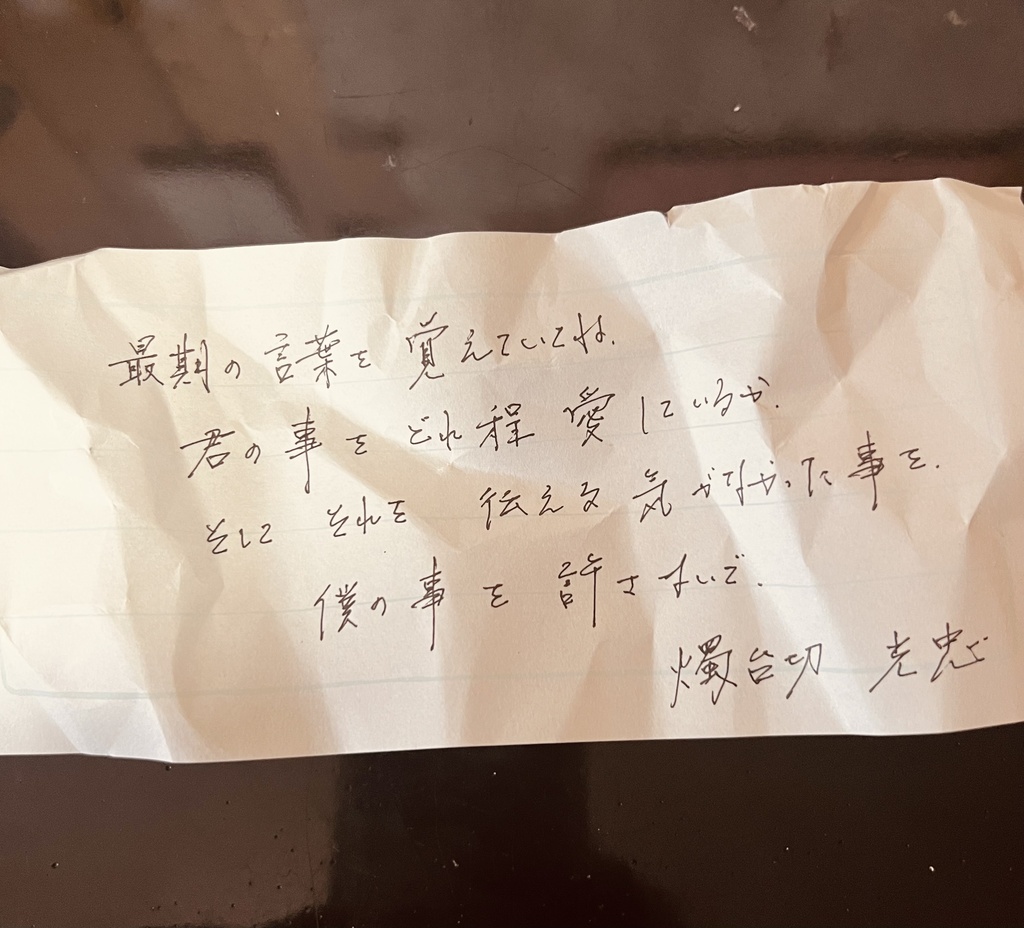 最期の言葉を覚えていてね.
君の事をどれ程愛しているか.
そしてそれを伝える気がなかった事を.
僕の事を許さないで.
燭台切 光忠